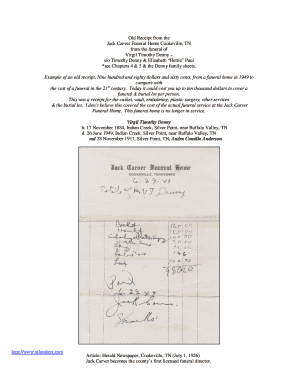 Old Receipt from the
Jack Carver Funeral Home Cookeville, TN
from the funeral of
Virgil Timothy Denny –
s/o Timothy Denny & Elizabeth "Bettie" Paul
*see Chapters 4 & 5 & the Denny family sheets.
Example of an old receipt, Nine hundred and eighty dollars and sixty cents, from a funeral home in 1949 to
compare with
the cost of a funeral in the 21st century. Today it could cost you up to ten thousand dollars to cover a
funeral & burial for per person.
This was a receipt for the casket, vault, embalming, plastic surgery, other services
& the burial list. I don't believe this covered the cost of the actual funeral service at the Jack Carver
Funeral Home. This funeral home is no longer in service.
Virgil Timothy Denny
b. 17 November 1884, Indian Creek, Silver Point, near Buffalo Valley, TN
d. 26 June 1949, Indian Creek, Silver Point, near Buffalo Valley, TN
md 28 November 1917, Silver Point, TN, Audra Camilla Anderson
Jack Carver Funeral Home
COOKEVILLE, TENNESSEE
6-29-49
Denny
Casket
980.60
Paid
6-29-49
Jack Carver
Thanks
Article: Herald Newspaper, Cookeville, TN (July 1, 1936)
Jack Carver becomes the county's first licensed funeral director.